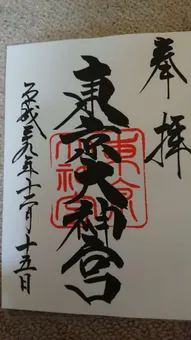 奉拝
東京大神宮
平成二九年十二月十五日
東京大神宮